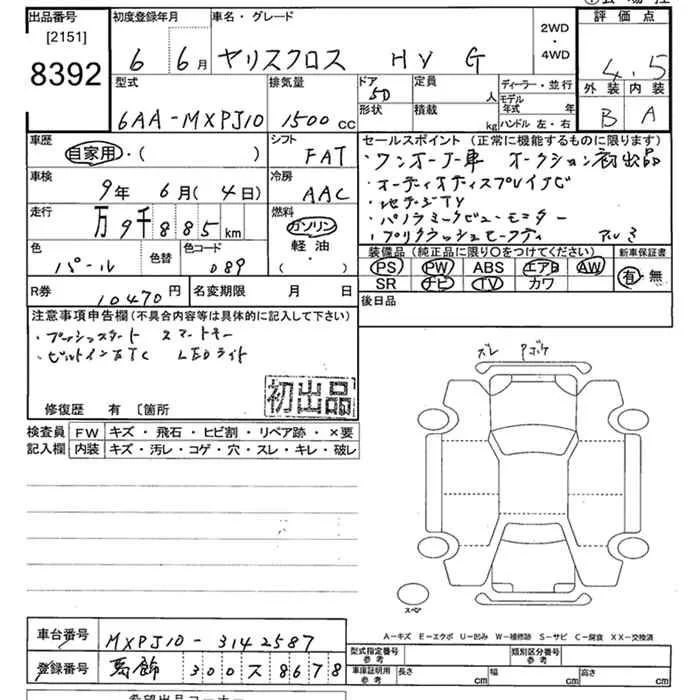 出品番号 初度登録年月 車名・グレード 2WD・4WD 評価点
[2151]
8392 6年 6月 ヤリスクロス HV G 4.5
型式 排気量 ドア 5D 定員 人 ディーラー・並行 外装 内装
6AA-MXPJ10 1500cc 形状 積載 kg モデル年式 年 ハンドル 左・右 B A
車歴 シフト セールスポイント (正常に機能するものに限ります)
自家用・( ) FAT ・ワンオーナー車 オークション初出品
車検 冷房 ・オーディオディスプレイナビ
9年 6月(4日) AAC ・地デジTV
走行 燃料 ・パノラミックビューモニター
万9千885km ガソリン ・プリクラッシュセーフティ アルミ
色 色替 色コード 軽油・ 装備品(純正品に限り○をつけてください) 新車保証書
パール 089 ( ・ ) PS PW ABS エアB AW 有・無
SR ナビ TV カワ
R券 10470円 名変期限 月 日 後日品
注意事項申告欄(不具合内容等は具体的に記入して下さい)
・プッシュスタート スマートキー
・ビルトインETC LEDライト
初出品
修復歴 有 〔箇所
検査員 FW キズ・飛石・ヒビ割・リペア跡・×要
記入欄 内装 キズ・汚レ・コゲ・穴・スレ・キレ・破レ
ズレ
スペア
A−キズ E−エクボ U−凹み W−補修跡 S−サビ C−腐食 XX−交換済
車台番号 MXPJ10-3142587 型式指定番号 参考 類別区分番号 参考
登録番号 葛飾 300ス8678 車庫証明用 参考 長さ cm 幅 cm 高さ cm
希望出品コーナー